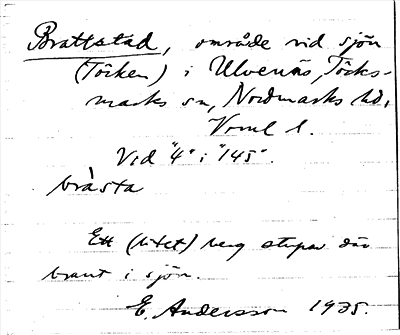 Brattstad, område vid sjön
(Töcken) i Ulvenäs, Töcks-
marks sn, Nordmarks hd,
Vrml l.
Vid "4" i "145".
bråsta
Ett (litet) berg stupar där
brant i sjön.
E. Andersson 1935.